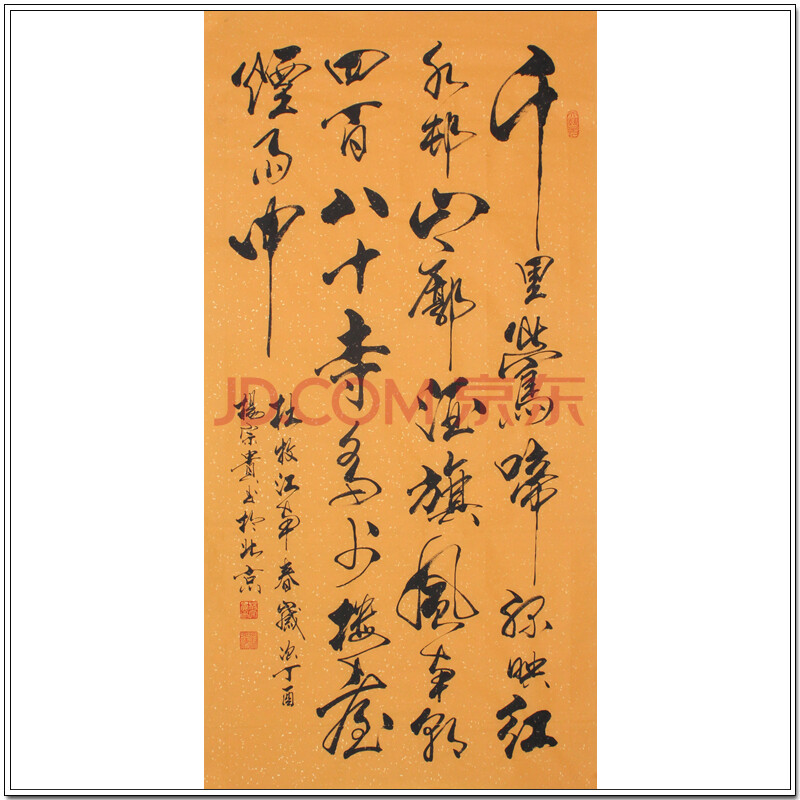 千里鶯啼绿映红
水村山廓酒旗風南朝
四百八十寺多少楼臺
煙雨中
杜牧江南春歲次丁酉
楊宗貴书於北京
JD.COM京东